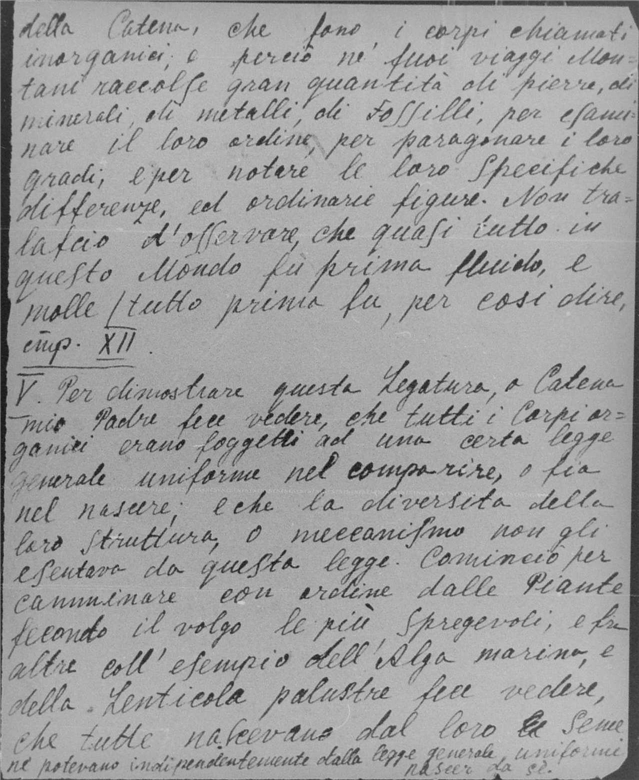 della Catena, che sono i corpi chiamati
inorganici; e perciò ne' suoi viaggi Mon=
tani raccolse gran quantità di pierre, di
minerali, di metalli, di Fossilli, per esami=
nare il loro ordine, per paragonare i loro
gradi, e per notare le loro specifiche
differenze, ed ordinarie figure. Non tra=
lascio d'osservare, che quasi tutto in
questo Mondo fù prima fluido, e
molle / tutto prima fu, per così dire,
XII.
V. Per dimostrare questa Legatura, o Catena
mio Padre fece vedere, che tutti i Corpi or=
ganici erano soggetti ad una certa legge
generale uniforme nel comparire, o sia
nel nascere; e che la diversità della
loro struttura, o meccanismo non gli
esentava da questa legge. Cominciò per
camminare con ordine dalle Piante
secondo il volgo le più spregevoli, e fra
altre coll'esempio dell'Alga marina, e
della Lenticola palustre fece vedere,
che tutte nascevano dal loro Seme
ne potevano indipendentemente dalla legge generale, uniformi
nascer da sè.